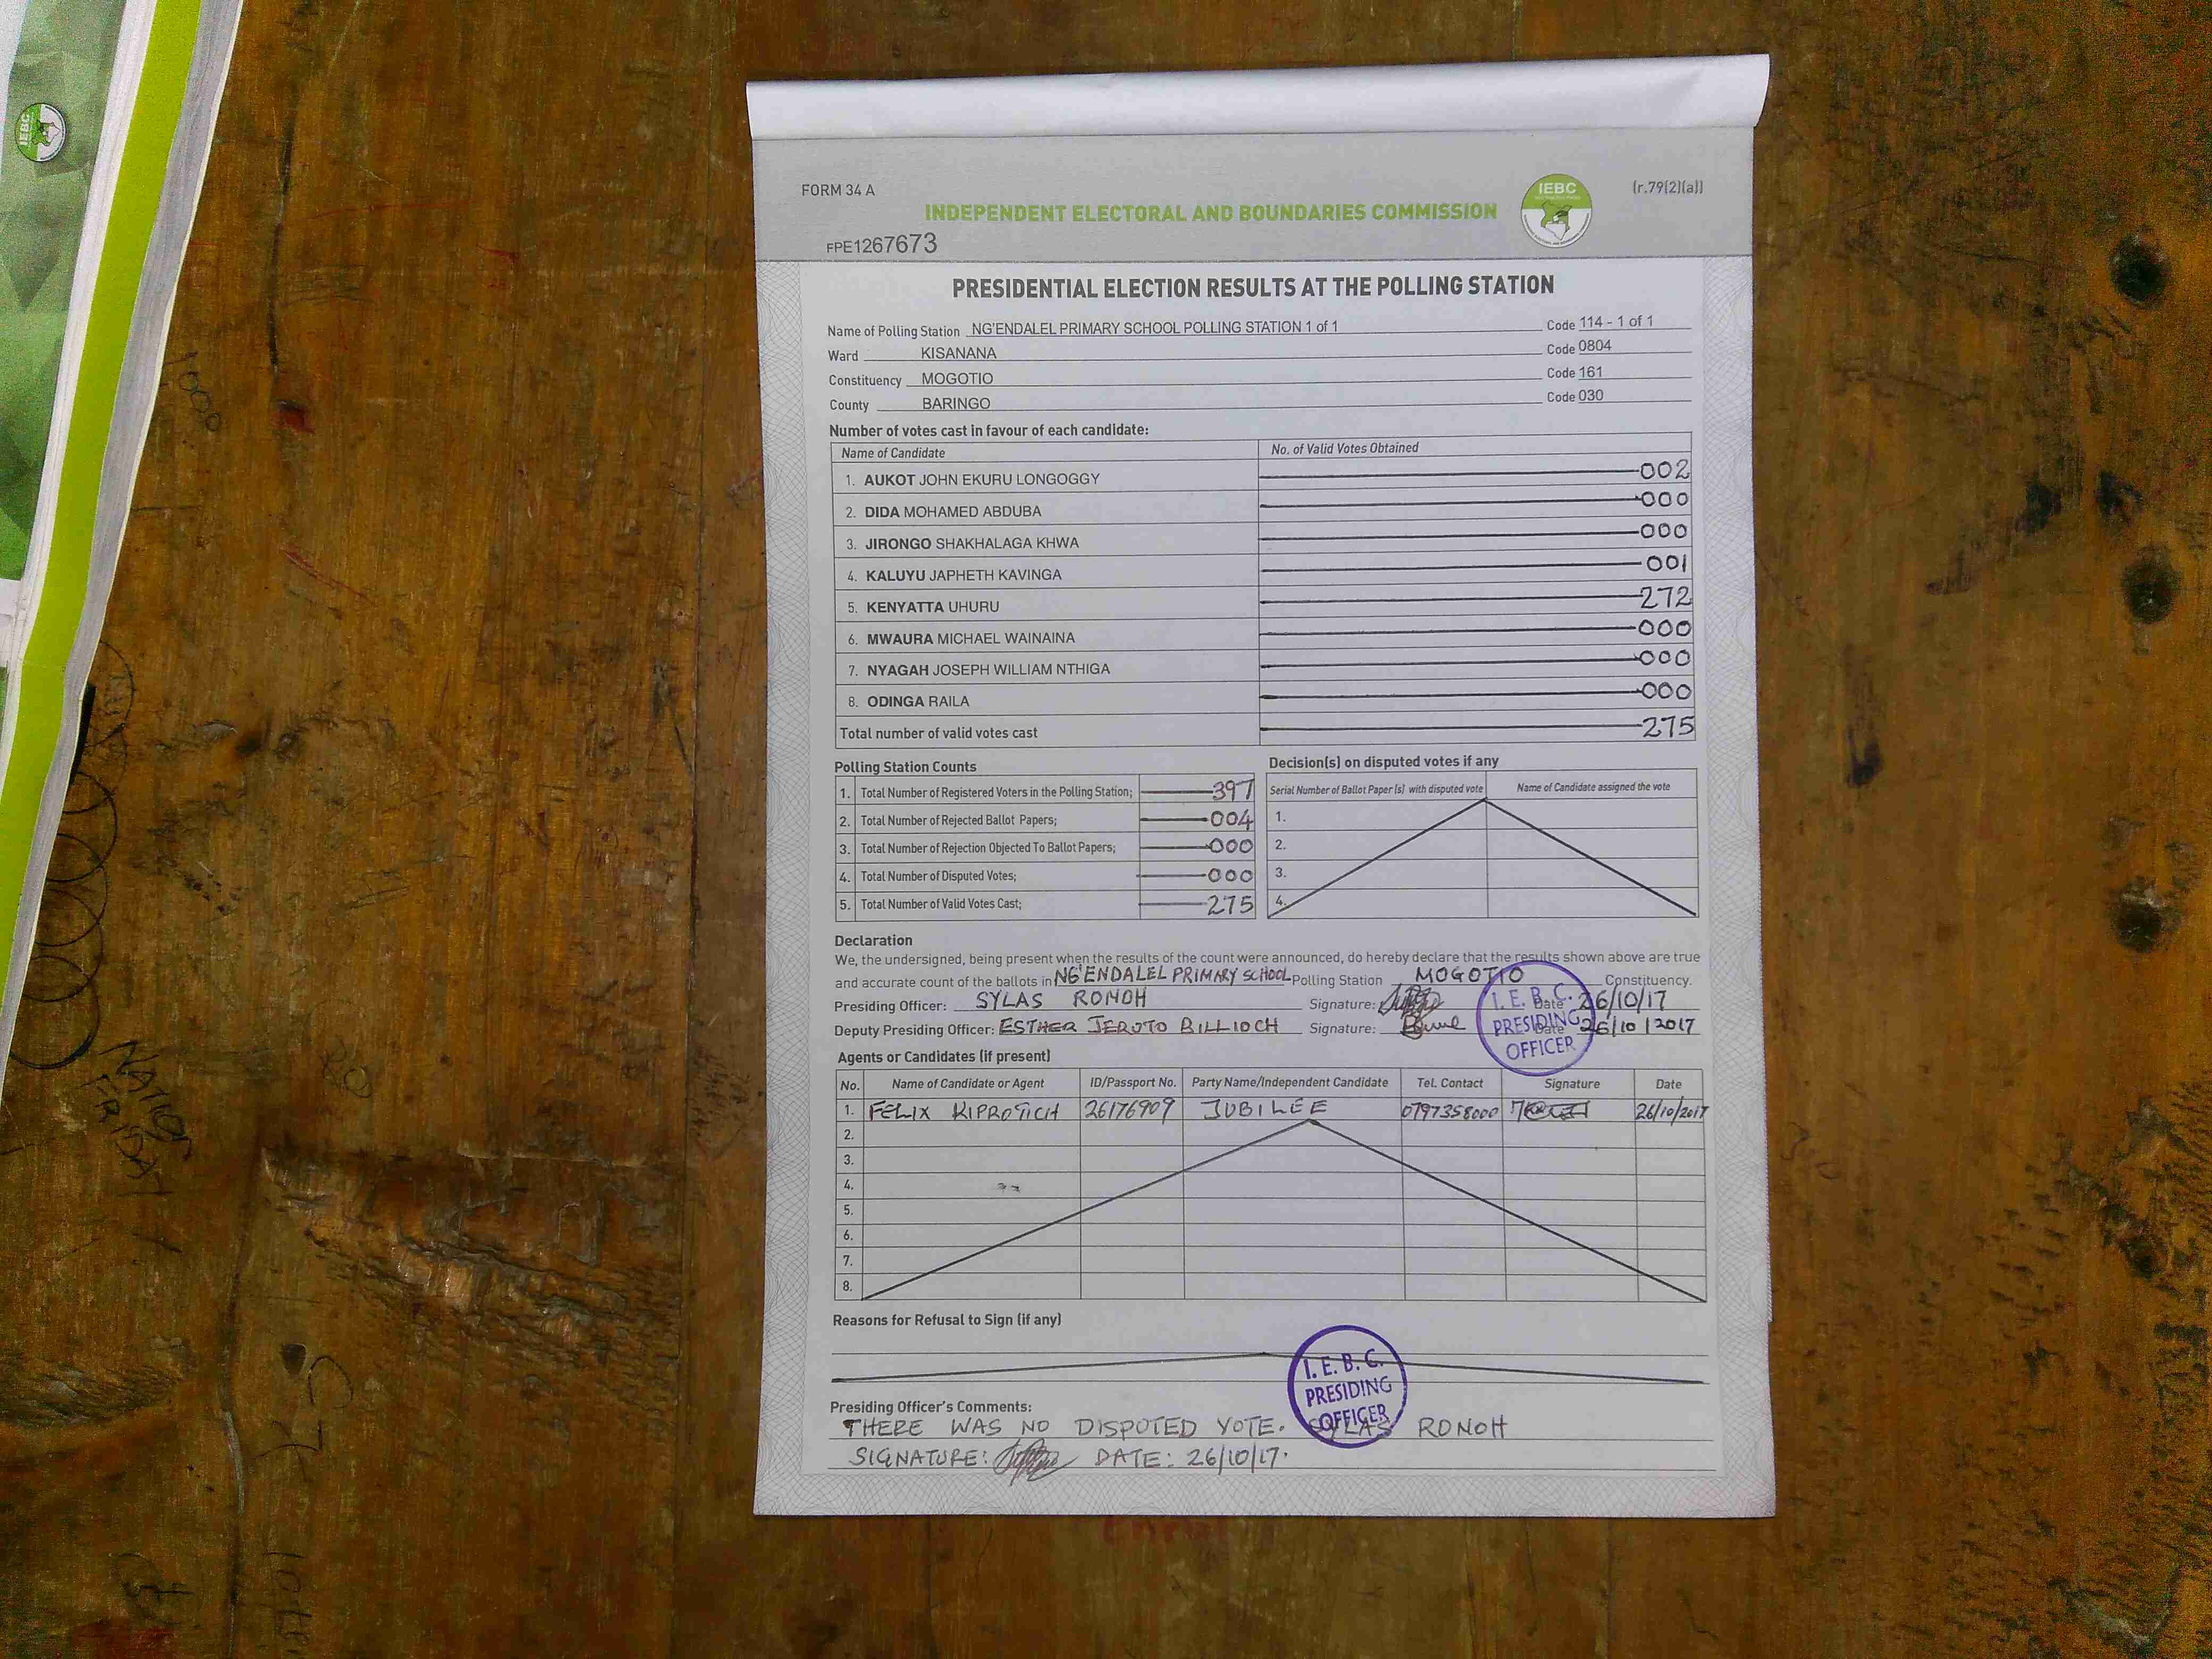 IEBC
FORM 34 A
IEBC
(r.79(2)(a))
INDEPENDENT ELECTORAL AND BOUNDARIES COMMISSION
FPE1267673
PRESIDENTIAL ELECTION RESULTS AT THE POLLING STATION
Name of Polling Station NG'ENDALEL PRIMARY SCHOOL POLLING STATION 1 of 1 Code 114 - 1 of 1
Ward KISANANA Code 0804
Constituency MOGOTIO Code 161
County BARINGO Code 030
Number of votes cast in favour of each candidate:
Name of Candidate No. of Valid Votes Obtained
1. AUKOT JOHN EKURU LONGOGGY 002
2. DIDA MOHAMED ABDUBA 000
3. JIRONGO SHAKHALAGA KHWA 000
4. KALUYU JAPHETH KAVINGA 001
5. KENYATTA UHURU 272
6. MWAURA MICHAEL WAINAINA 000
7. NYAGAH JOSEPH WILLIAM NTHIGA 000
8. ODINGA RAILA 000
Total number of valid votes cast 275
Polling Station Counts
1. Total Number of Registered Voters in the Polling Station; 397
2. Total Number of Rejected Ballot Papers; 004
3. Total Number of Rejection Objected To Ballot Papers; 000
4. Total Number of Disputed Votes; 000
5. Total Number of Valid Votes Cast; 275
Decision(s) on disputed votes if any
Serial Number of Ballot Paper (s) with disputed vote Name of Candidate assigned the vote
1.
2.
3.
4.
Declaration
We, the undersigned, being present when the results of the count were announced, do hereby declare that the results shown above are true
and accurate count of the ballots in NG'ENDALEL PRIMARY SCHOOL Polling Station MOGOTIO Constituency.
Presiding Officer: SYLAS RONOH Signature: Date 26/10/17
Deputy Presiding Officer: ESTHER JEROTO BILLIOCH Signature: Date 26/10/2017
I. E. B. C.
PRESIDING
OFFICER
Agents or Candidates (if present)
No. Name of Candidate or Agent ID/Passport No. Party Name/Independent Candidate Tel. Contact Signature Date
1. FELIX KIPROTICH 26176909 JUBILEE 0797358000 26/10/2017
2.
3.
4.
5.
6.
7.
8.
Reasons for Refusal to Sign (if any)
I. E. B. C.
PRESIDING
OFFICER
Presiding Officer's Comments:
THERE WAS NO DISPUTED VOTE. SYLAS RONOH
SIGNATURE: DATE: 26/10/17.